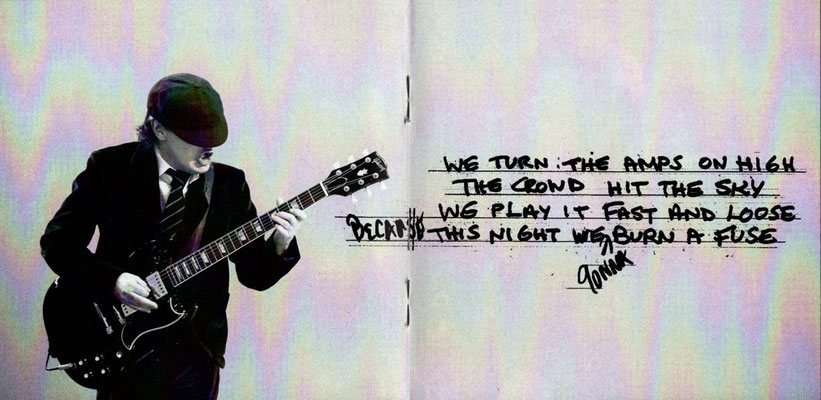 WE TURN THE AMPS ON HIGH
THE CROWD HIT THE SKY
WE PLAY IT FAST AND LOOSE
BECAUSE THIS NIGHT WE BURN A FUSE
GONNA